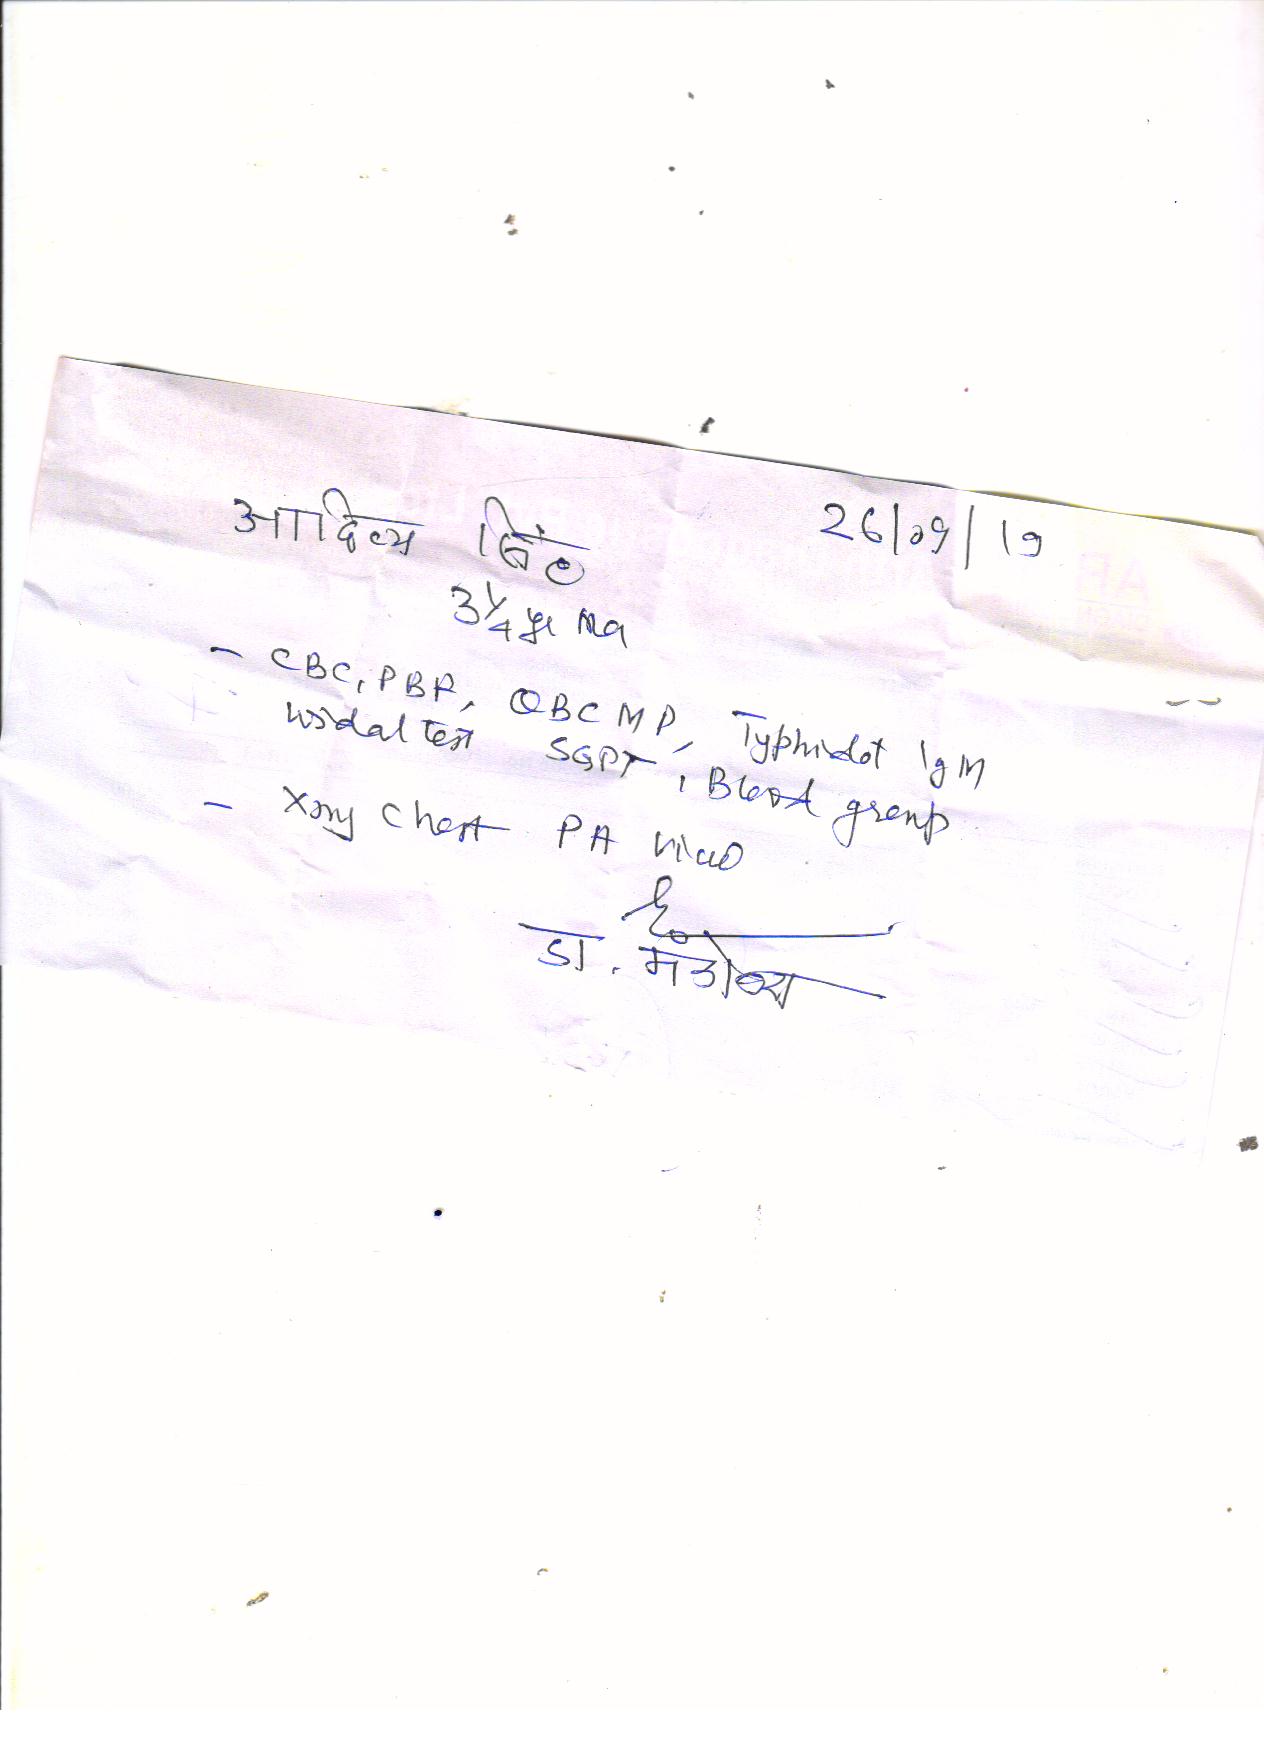 आदित्य सिंह 26/09/19
3 1/4 yr Ma
- CBC, PBF, QBC MP, Typhidot IgM
widal test SGPT, Blood group
- Xray Chest PA View
डा.